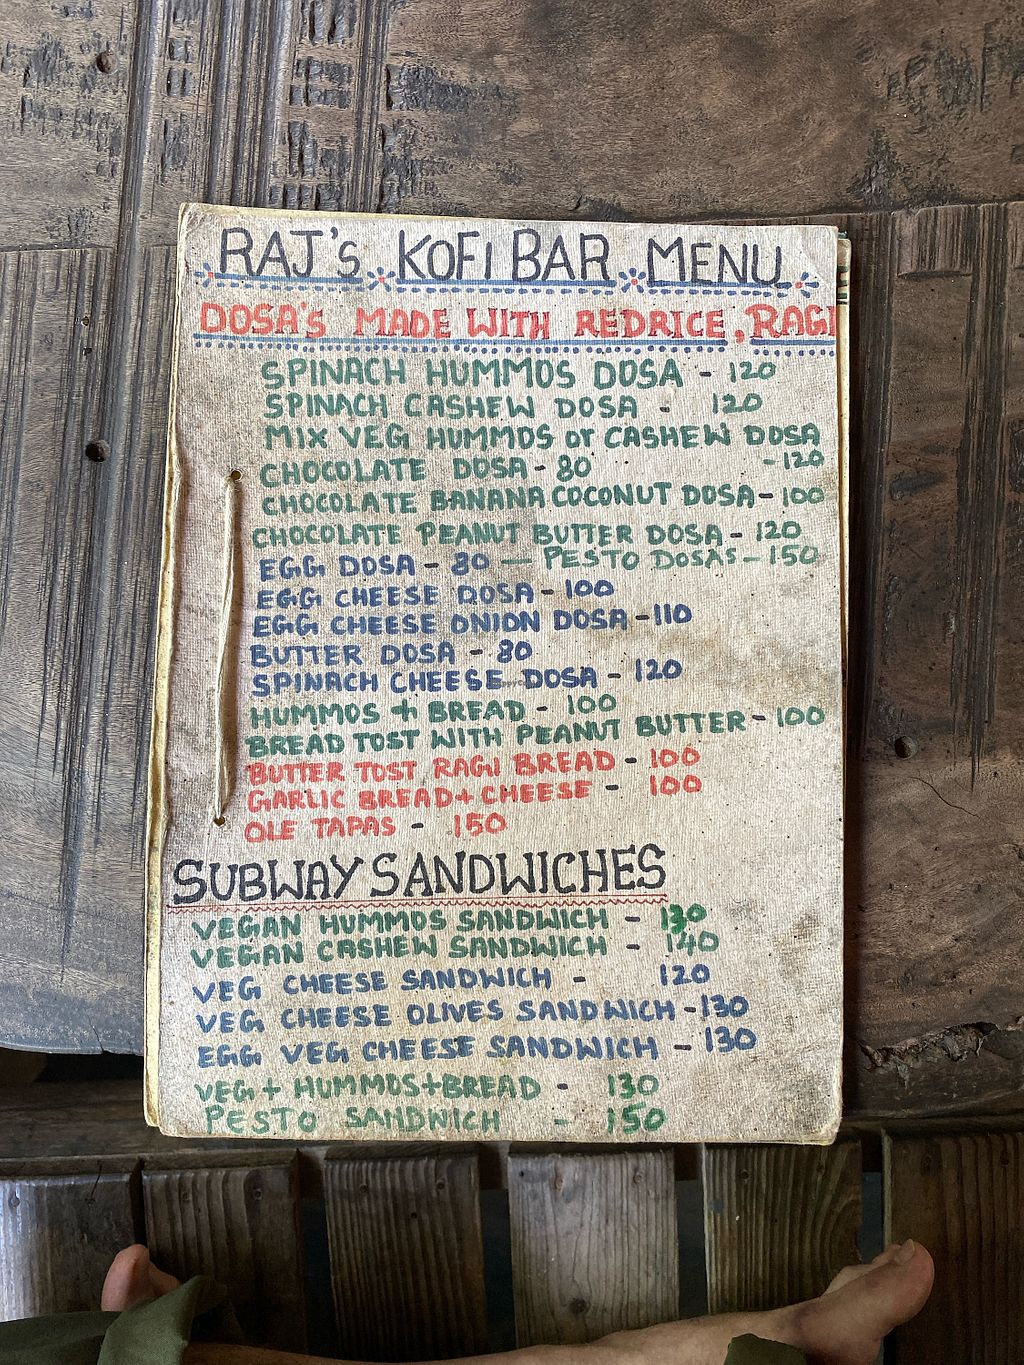 RAJ's KOFI BAR MENU
DOSA'S MADE WITH REDRICE, RAGI
SPINACH HUMMOS DOSA - 120
SPINACH CASHEW DOSA - 120
MIX VEG HUMMOS or CASHEW DOSA
- 120
CHOCOLATE DOSA - 80
CHOCOLATE BANANA COCONUT DOSA - 100
CHOCOLATE PEANUT BUTTER DOSA - 120
EGG DOSA - 80 — PESTO DOSAS - 150
EGG CHEESE DOSA - 100
EGG CHEESE ONION DOSA - 110
BUTTER DOSA - 80
SPINACH CHEESE DOSA - 120
HUMMOS + BREAD - 100
BREAD TOST WITH PEANUT BUTTER - 100
BUTTER TOST RAGI BREAD - 100
GARLIC BREAD + CHEESE - 100
OLE TAPAS - 150
SUBWAY SANDWICHES
VEGAN HUMMOS SANDWICH - 130
VEGAN CASHEW SANDWICH - 140
VEG CHEESE SANDWICH - 120
VEG CHEESE OLIVES SANDWICH - 130
EGG VEG CHEESE SANDWICH - 130
VEG + HUMMOS + BREAD - 130
PESTO SANDWICH - 150